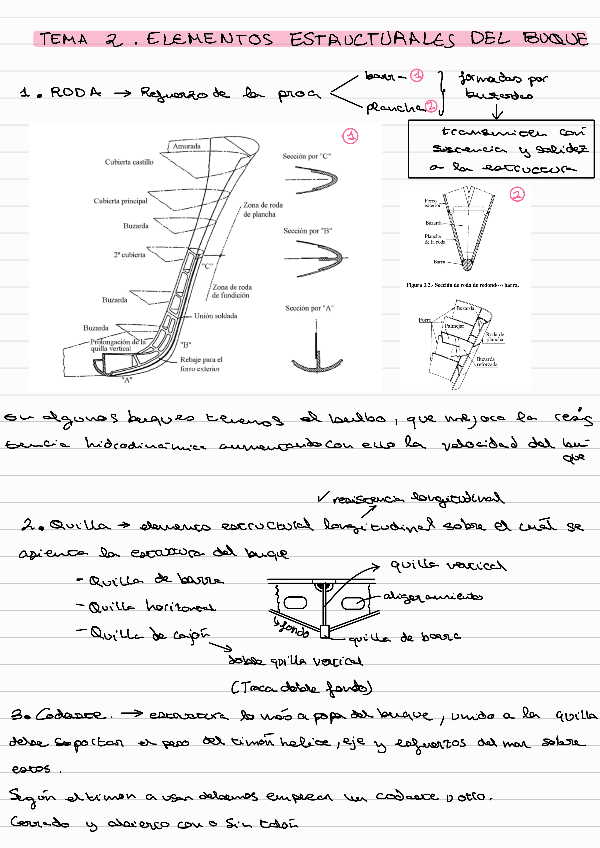 TEMA 2. ELEMENTOS ESTRUCTURALES DEL BUQUE
1. RODA → Refuerzo de la proa
barra ①
plancha ②
formadas por
buzardas
transmiten con
sistencia y solidez
a la estructura
①
Amurada
Cubierta castillo
Cubierta principal
Buzarda
2ª cubierta
Zona de roda
de plancha
"C"
Zona de roda
de fundición
Buzarda
Unión soldada
Buzarda
Prolongación de la
quilla vertical
"B"
Rebaje para el
forro exterior
"A"
Sección por "C"
Sección por "B"
Sección por "A"
②
Forro
exterior
Buzarda
Plancha
de la roda
Barra
Figura 2.2.- Sección de roda de redondo o barra.
Buzarda
Forro
Palmejar
Roda de
plancha
Buzarda
reforzada
En algunos buques tenemos el bulbo, que mejora la resis
tencia hidrodinámica aumentando con ello la velocidad del bu-
que
✓ resistencia longitudinal
2. Quilla → elemento estructural longitudinal sobre el cuál se
asienta la estructura del buque
- Quilla de barra
- Quilla horizontal
- Quilla de cajón
doble quilla vertical
(Toca doble fondo)
quilla vertical
aligeramiento
fondo
quilla de barra
3. Codaste. → estructura lo más a popa del buque, unido a la quilla
debe soportar el peso del timón, hélice, eje y esfuerzos del mar sobre
estos.
Según el timón a usar debemos emplear un codaste u otro.
Cerrado y abierto con o sin talón